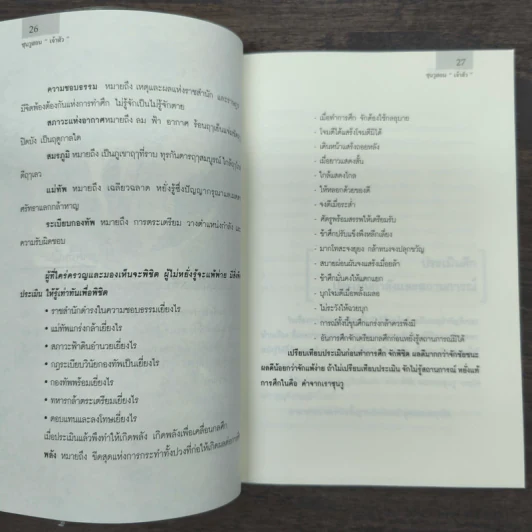 26
ซุนวูสอน " เจ้าสัว "
ความชอบธรรม หมายถึง เหตุและผลแห่งราชสำนัก
มีจิตพ้องต้องกันแห่งการทำศึก ไม่รู้จักเป็นไม่รู้จักตาย
สภาวะแห่งอากาศหมายถึง ลม ฟ้า อากาศ
ปิดบัง เป็นฤดูกาลใด
สมรภูมิ หมายถึง เป็นภูเขาฤๅที่ราบ ทุรกันดารฤๅสมบูรณ์
ดีฤๅเลว
แม่ทัพ หมายถึง เฉลียวฉลาด หยั่งรู้ซึ่งปัญญากรุณา
ศรัทธาแกกล้าหาญ
ระเบียบกองทัพ หมายถึง การตระเตรียม วางตำแหน่งกำลัง
ความรับผิดชอบ
ผู้ที่ใคร่ครวญและมองเห็นจะพิชิต ผู้ไม่หยั่งรู้จะแพ้พ่าย
ประเมิน ให้รู้เท่าทันเพื่อพิชิต
• ราชสำนักดำรงในความชอบธรรมเยี่ยงไร
• แม่ทัพแกร่งกล้าเยี่ยงไร
• สภาวะฟ้าดินอำนวยเยี่ยงไร
• กฎระเบียบวินัยกองทัพเป็นเยี่ยงไร
• กองทัพพร้อมเยี่ยงไร
• ทหารกล้าตระเตรียมเยี่ยงไร
• ตอบแทนและลงโทษเยี่ยงไร
เมื่อประเมินแล้วพึงทำให้เกิดพลัง เกิดพลังเพื่อเคลื่อนกลศึก
พลัง หมายถึง ขีดสุดแห่งการกระทำทั้งปวงที่ก่อให้เกิดผล
27
ซุนวูสอน " เจ้าสัว "
- เมื่อทำการศึก จักต้องใช้กลอุบาย
- โจมตีได้แสร้งโจมตีมิได้
- เดินหน้าแสร้งถอยหลัง
- เมื่อยาวแสดงสั้น
- ใกล้แสดงไกล
- ให้หลอกด้วยของดี
- จงตีเมื่อระส่ำ
- ศัตรูพร้อมสรรพให้เตรียมรับ
- ข้าศึกปรับแข็งพึงหลีกเลี่ยง
- มากโทสะจงยุยง กล้าหนจงปลุกขวัญ
- สบายผ่อนมันจงแสร้งเมื่อยล้า
- ข้าศึกมั่นคงให้แตกแยก
- บุกโจมตีเมื่อพลั้งเผลอ
- ไม่ระวังให้แวะบุก
- การณ์ทั้งนี้ขุนศึกแกร่งกล้าควรพึงมี
- อันการศึกจักเตรียมกลศึกก่อนหยั่งรู้สถานการณ์มิได้
เปรียบเทียบประเมินก่อนทำการศึก จักพิชิต ผลดีมากกว่าจักชัยชนะ
ผลดีน้อยกว่าจักแพ้พ่าย ถ้าไม่เปรียบเทียบประเมิน จักไม่รู้สถานการณ์ หยั่งแท้
การศึกในคือ คำจากเราซุนวู